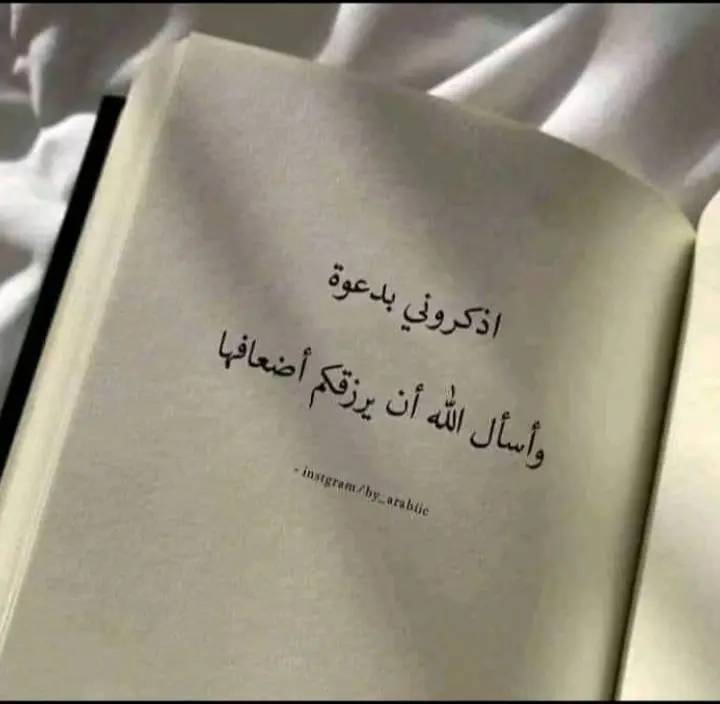 اذكروني بدعوة
وأسأل الله أن يرزقكم أضعافها
- instgram/by_arabiic